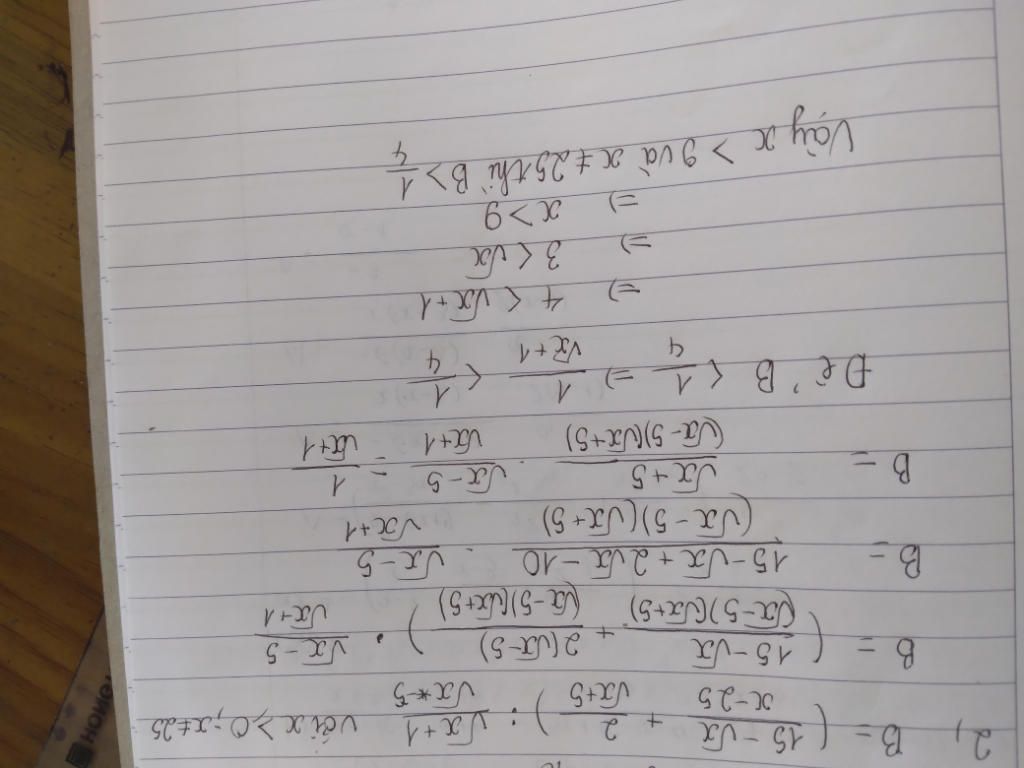 2, B = ( 15 - √x / x - 25 + 2 / √x + 5 ) : √x + 1 / √x - 5 với x ≥ 0 ; x ≠ 25
B = ( 15 - √x / (√x - 5)(√x + 5) + 2(√x - 5) / (√x - 5)(√x + 5) ) . √x - 5 / √x + 1
B = 15 - √x + 2√x - 10 / (√x - 5)(√x + 5) . √x - 5 / √x + 1
B = √x + 5 / (√x - 5)(√x + 5) . √x - 5 / √x + 1 = 1 / √x + 1
Để B < 1/4 => 1 / √x + 1 < 1/4
=> 4 < √x + 1
=> 3 < √x
=> x > 9
Vậy x > 9 và x ≠ 25 thì B > 1/4